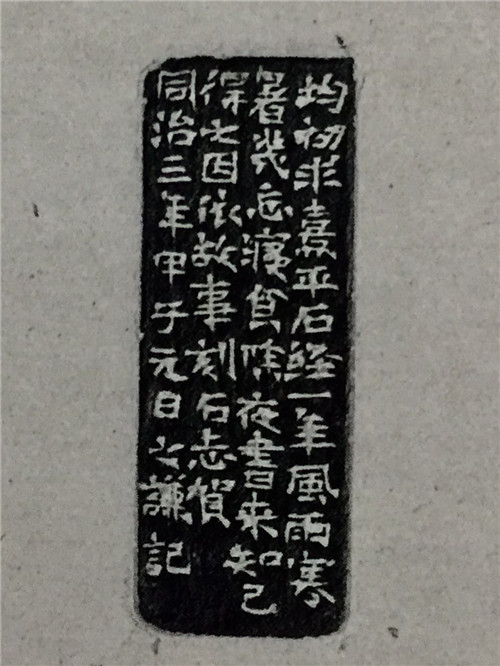 均初求熹平石經一年風雨寒
暑幾忘寢食除夜書來知己
得之因依故事刻石志賀
同治三年甲子元日之謙記